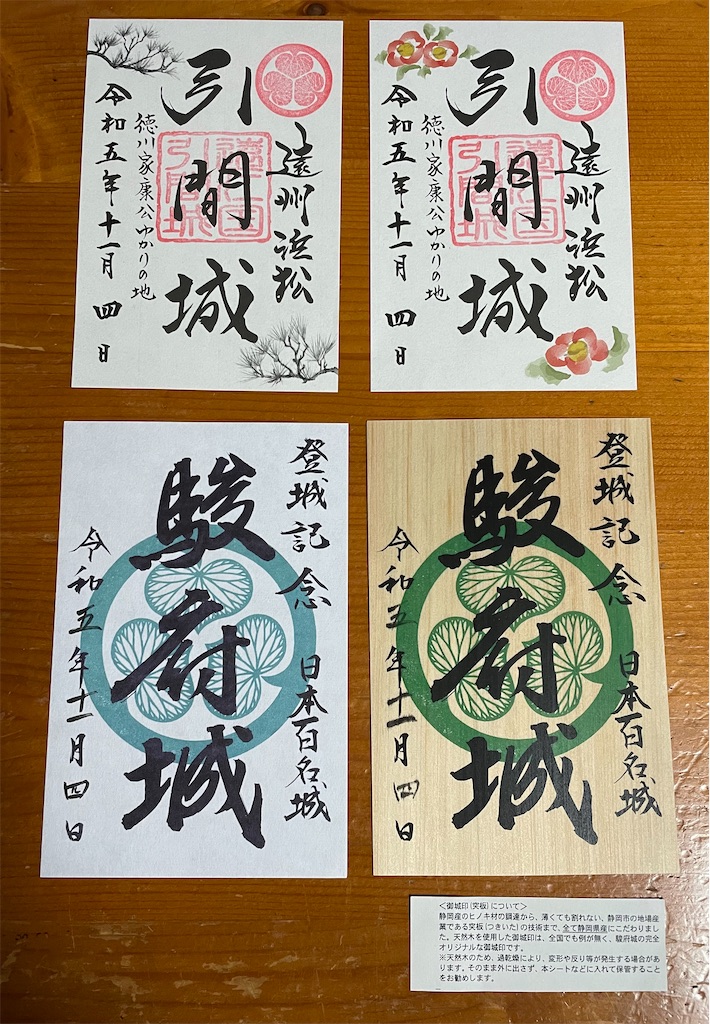 遠州浜松
引間城
徳川家康公ゆかりの地
令和五年十一月四日
遠州浜松
引間城
徳川家康公ゆかりの地
令和五年十一月四日
登城記念 日本百名城
駿府城
令和五年十一月四日
登城記念 日本百名城
駿府城
令和五年十一月四日
<御城印(突板)について>
静岡産のヒノキ材の調達から、薄くても割れない、静岡市の地場産
業である突板(つきいた)の技術まで、全て静岡県産にこだわりま
した。天然木を使用した御城印は、全国でも例が無く、駿府城の完全
オリジナルな御城印です。
※天然木のため、過乾燥により、変形や反り等が発生する場合があ
ります。そのまま外に出さず、本シートなどに入れて保管すること
をお勧めします。